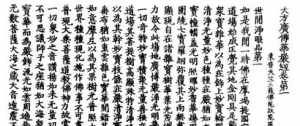 大方廣佛華嚴經卷第一
世間淨眼品第一 東晉天竺三藏佛陀跋陀羅
如是我聞一時佛在摩竭提國
道場始成正覺其地金剛具足嚴
眾寶雜華以為莊飾上妙寶輪
清淨無量妙色種種莊嚴猶如
寶幢幡蓋光明照耀妙香華
七寶羅網彌覆其上雨無盡
顯現自在諸雜寶樹華葉光
力故令此場地廣博嚴淨光
一切奇特妙寶積聚無量善
道場其菩提樹高顯殊特清
為其幹妙寶枝條莊嚴清淨
垂布猶如重雲雜色寶華間
如意摩尼以為其果樹光普照
世界種種現化施作佛事不可盡
普現大乘菩薩道教佛神力故常
一切眾妙之音讚揚如來無量功
不可思議師子之座猶如大海
寶華而為嚴飾流光如雲
無量菩薩大海之藏大音遠震不